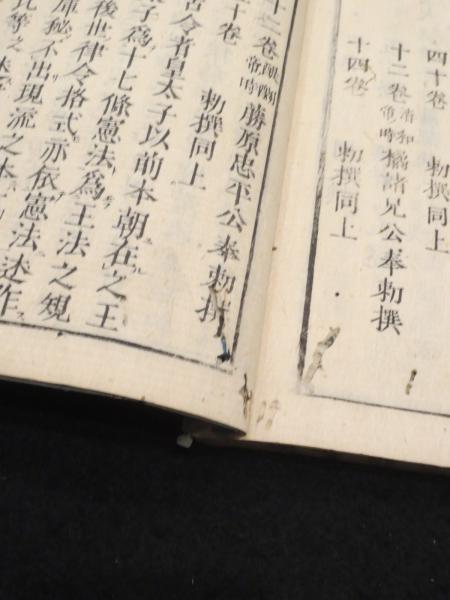 四十卷　勅撰同上
十二卷清和帝時橘諸兄公奉勅撰
十四卷　勅撰同上
十二卷　帝時藤原忠平公奉勅撰
十卷　勅撰同上
古令者皇太子以前本朝在之王
子為十七條憲法為王法之規
後世律令格式亦依憲法述作
庫秘不出現流之本
此等之